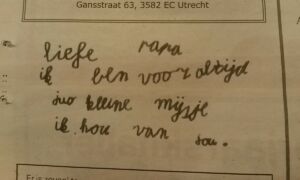 Gansstraat 63, 3582 EC Utrecht
liefe papa
ik ben voor altijd
juo kleine mijsje
ik hou van
jou.